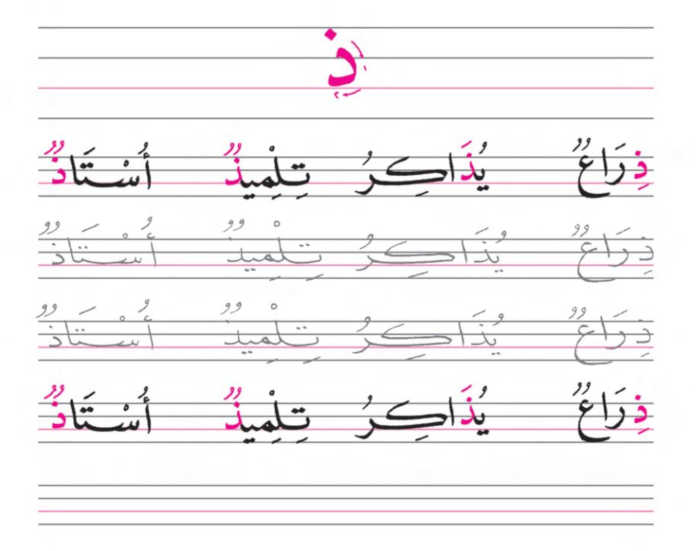 ذِ
ذِرَاعٌ يُذَاكِرُ تِلْمِيذٌ أُسْتَاذٌ
ذِرَاعٌ يُذَاكِرُ تِلْمِيذٌ أُسْتَاذٌ
ذِرَاعٌ يُذَاكِرُ تِلْمِيذٌ أُسْتَاذٌ
ذِرَاعٌ يُذَاكِرُ تِلْمِيذٌ أُسْتَاذٌ